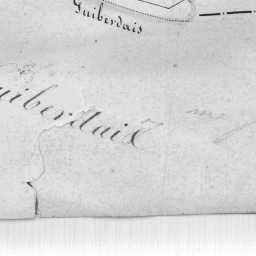 Guiberdais
uiberdaix